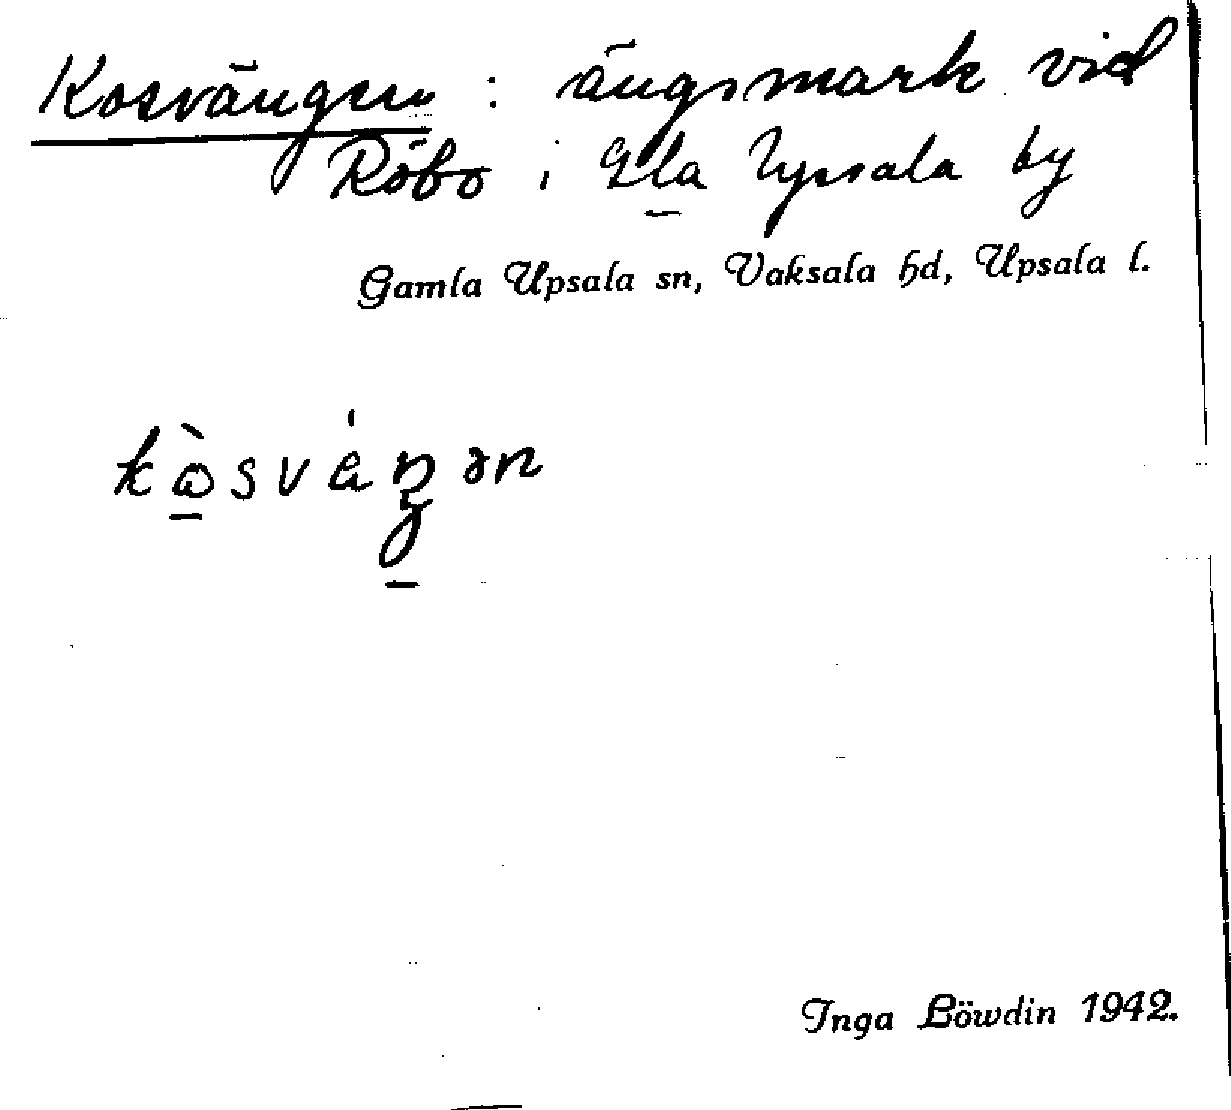 Kosvängen : ängsmark vid
Röbo i Gla Upsala by
Gamla Upsala sn, Vaksala hd, Upsala l.
Inga Löwdin 1942.